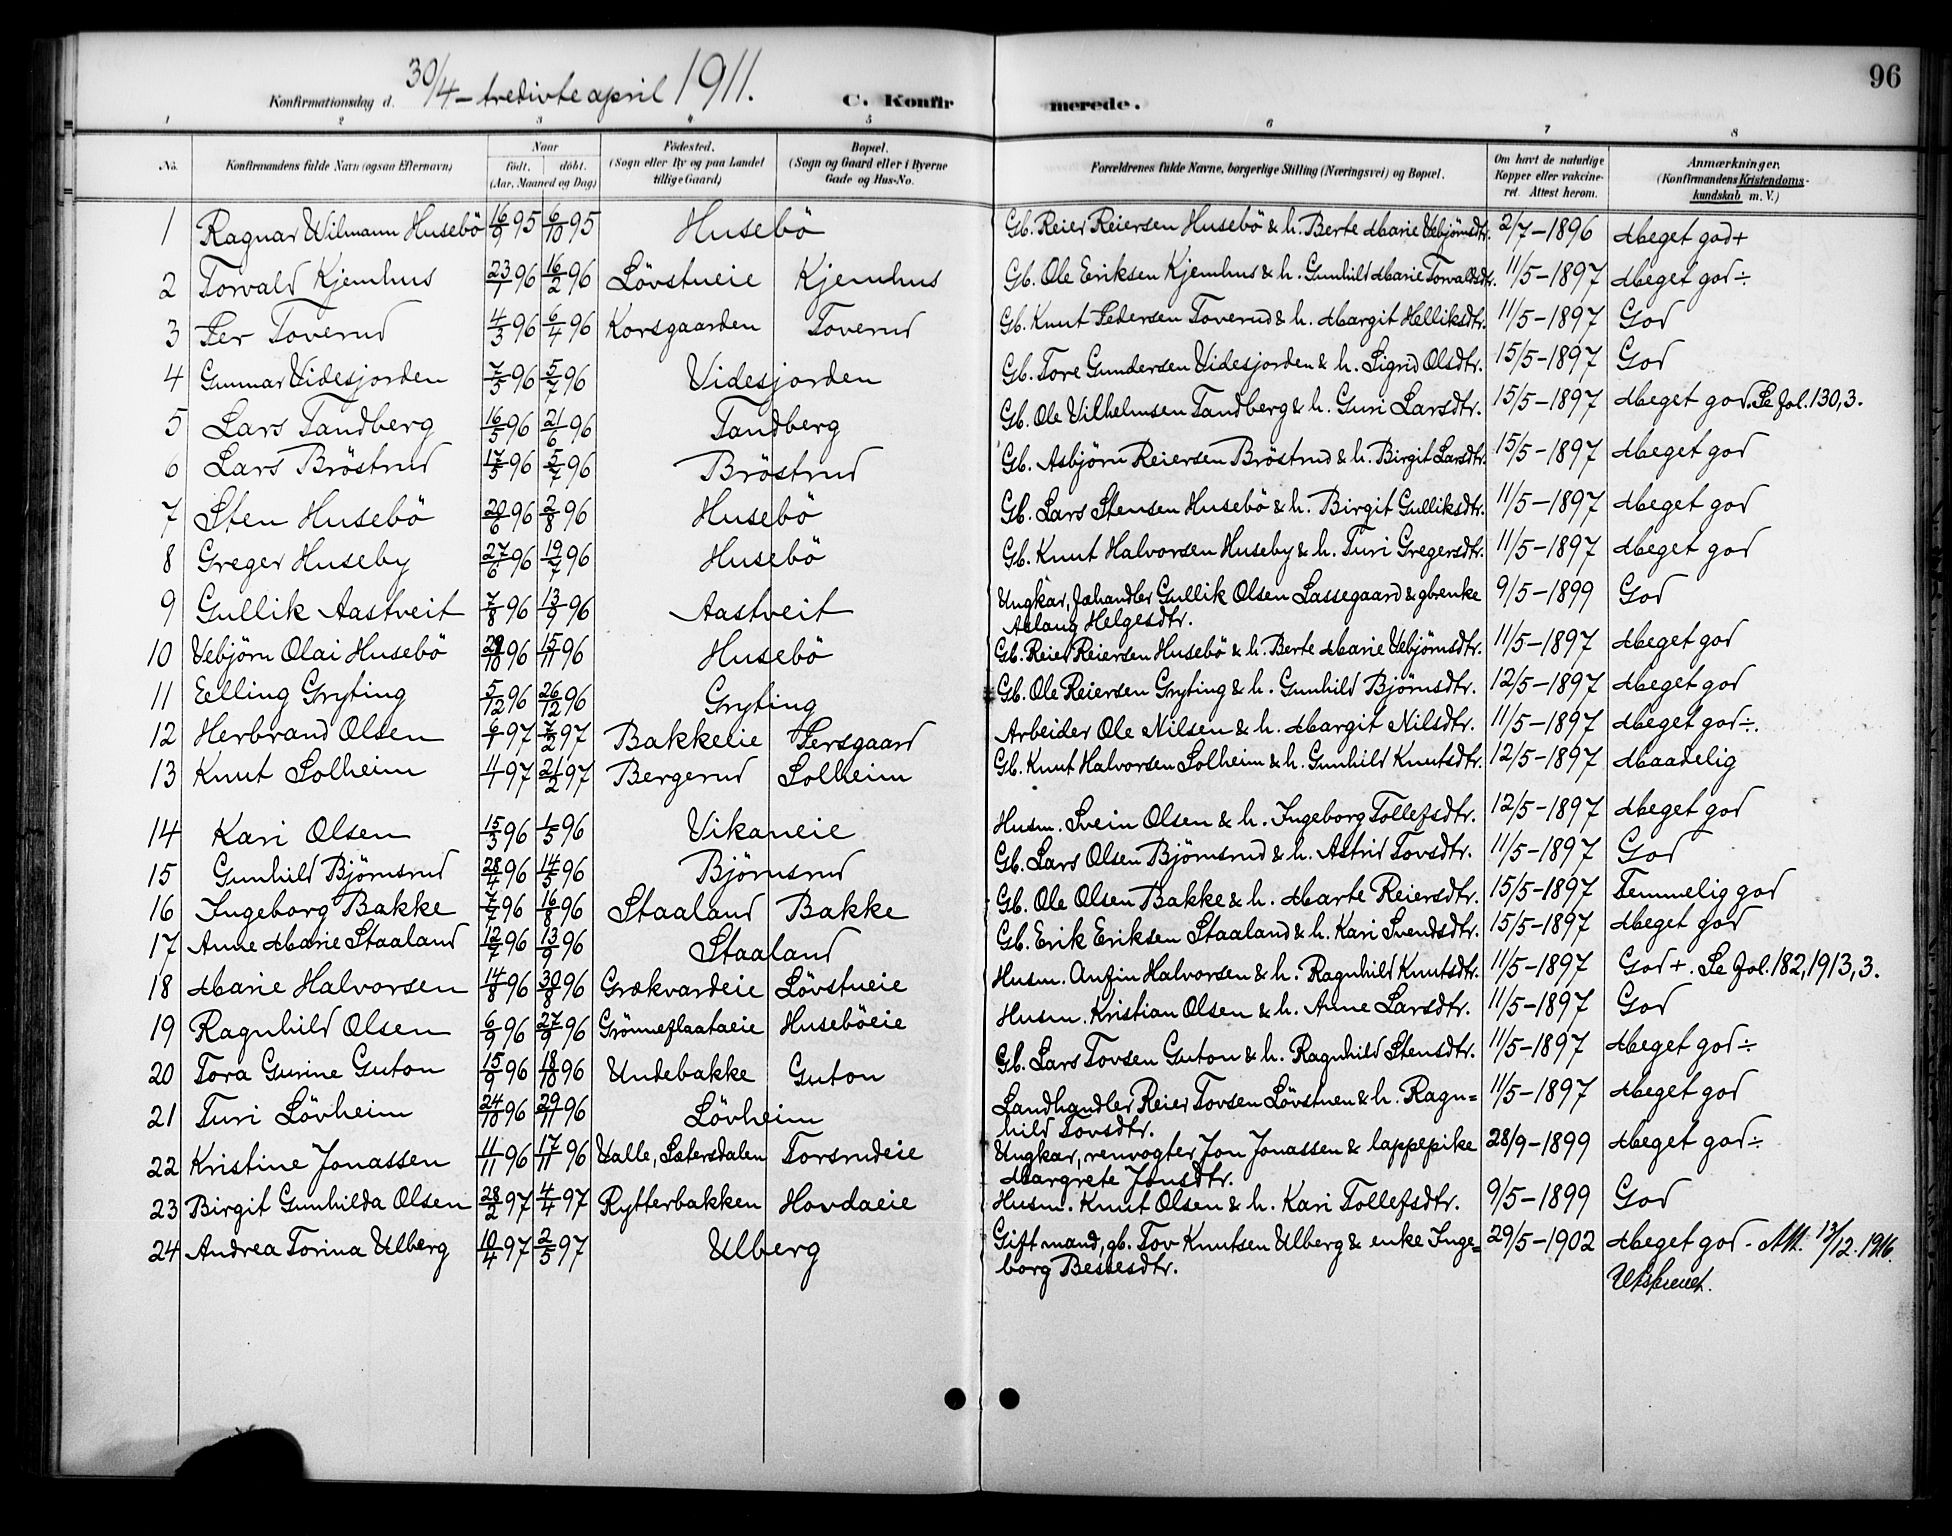 96
Konfirmationsdag d. 30/4 – tredivte april 1911.
C. Konfirmerede.
1 2 3 4 5 6 7 8
No. Konfirmandens fulde Navn (ogsaa Efternavn) Naar født. døbt. (Aar, Maaned og Dag) Fødested. (Sogn eller By og paa Landet tillige Gaard) Bopæl. (Sogn og Gaard eller i Byerne Gade og Hus-No. Forældrenes fulde Navne, borgerlige Stilling (Næringsvei) og Bopæl. Om havt de naturlige Kopper eller vakcineret. Attest herom. Anmærkninger. (Konfirmandens Kristendomskundskab m. V.)
1 Ragnar Wilmann Husebö 16/9 95 6/10 95 Husebö Gb. Reier Reiersen Husebö & h. Berte Marie Vebjörnsdtr. 2/7–1896 Meget god +
2 Torvald Kjemhus 23/1 96 16/2 96 Lövstueie Kjemhus Gb. Ole Eriksen Kjemhus & h. Gunhild Marie Torvaldsdtr. 11/5–1897 Meget god ÷
3 Per Toverud 4/3 96 6/4 96 Korsgaarden Toverud Gb. Knut Pedersen Toverud & h. Margit Helliksdtr. 11/5–1897 God
4 Gunnar Videsjorden 7/5 96 5/7 96 Videsjorden Gb. Tore Gundersen Videsjorden & h. Sigrid Olsdtr. 15/5–1897 God
5 Lars Tandberg 16/5 96 21/6 96 Tandberg Gb. Ole Vilhelmsen Tandberg & h. Guri Larsdtr. 15/5–1897 Meget god. Se fol. 130, 3.
6 Lars Bröstrud 17/5 96 5/7 96 Bröstrud Gb. Asbjörn Reiersen Bröstrud & h. Birgit Larsdtr. 15/5–1897 Meget god
7 Sten Husebö 20/6 96 2/8 96 Husebö Gb. Lars Stensen Husebö & h. Birgit Gulliksdtr. 11/5–1897 Meget god
8 Greger Huseby 27/6 96 19/7 96 Husebö Gb. Knut Halvorsen Huseby & h. Turi Gregersdtr. 11/5–1897 Meget god
9 Gullik Aastveit 7/8 96 13/9 96 Aastveit Ungkar, fæhandler Gullik Olsen Lassegaard & gbenke 9/5–1899 God
Aslaug Helgesdtr.
10 Vebjörn Olai Husebö 29/10 96 15/11 96 Husebö Gb. Reier Reiersen Husebö & h. Berte Marie Vebjörnsdtr. 11/5–1897 Meget god
11 Elling Gryting 5/12 96 26/12 96 Gryting Gb. Ole Reiersen Gryting & h. Gunhild Björnsdtr. 12/5–1897 Meget god
12 Herbrand Olsen 6/1 97 7/2 97 Bakkelie Persgaard Arbeider Ole Nilsen & h. Margit Nilsdtr. 11/5–1897 Meget god ÷.
13 Knut Solheim 97 21/2 97 Bergerud Solheim Gb. Knut Halvorsen Solheim & h. Gunhild Knutsdtr. 12/5–1897 Maadelig
14 Kari Olsen 15/3 96 1/5 96 Vikaneie Husm. Svein Olsen & h. Ingeborg Tollefsdtr. 12/5–1897 Meget god
15 Gunhild Björnsrud 28/4 96 14/5 96 Björnsrud Gb. Lars Olsen Björnsrud & h. Astrid Tovsdtr. 11/5–1897 God
16 Ingeborg Bakke 7/7 96 16/8 96 Staaland Bakke Gb. Ole Olsen Bakke & h. Marte Reiersdtr. 15/5–1897 Temmelig god
17 Anne Marie Staaland 12/7 96 13/9 96 Staaland Gb. Erik Eriksen Staaland & h. Kari Svendsdtr. 15/5–1897 Meget god
18 Marie Halvorsen 14/8 96 30/8 96 Grækvardeie Lövstueie Husm. Anfin Halvorsen & h. Ragnhild Knutsdtr. 11/5–1897 God +. Se fol. 182, 1913, 3.
19 Ragnhild Olsen 6/9 96 27/9 96 Grönneflaataeie Huseböeie Husm. Kristian Olsen & h. Anne Larsdtr. 11/5–1897 God
20 Tora Gurine Guton 15/9 96 18/10 96 Undebakke Guton Gb. Lars Tovsen Guton & h. Ragnhild Stensdtr. 11/5–1897 Meget god ÷
21 Turi Lövheim 24/10 96 29/11 96 Lövheim Landhandler Reier Tovsen Lövstuen & h. Ragn= 11/5–1897 Meget god
hild Tovsdtr.
22 Kristine Jonassen 11/11 96 17/11 96 Valle, Sætersdalen Torsrudeie Ungkar, renvogter Jon Jonassen & lappepike 28/9–1899 Meget god ÷
Margrete Jonsdtr.
23 Birgit Gunhilda Olsen 28/2 97 4/4 97 Rytterbakken Hovdaeie Husm. Knut Olsen & h. Kari Tollefsdtr. 9/5–1899 God
24 Andrea Torina Ulberg 10/4 97 2/5 97 Ulberg Gift mand, gb. Tov Knutsen Ulberg & enke Inge= 29/5–1902 Meget god. Att. 13/12. 1916.
borg Bessesdtr. Utskrevet.